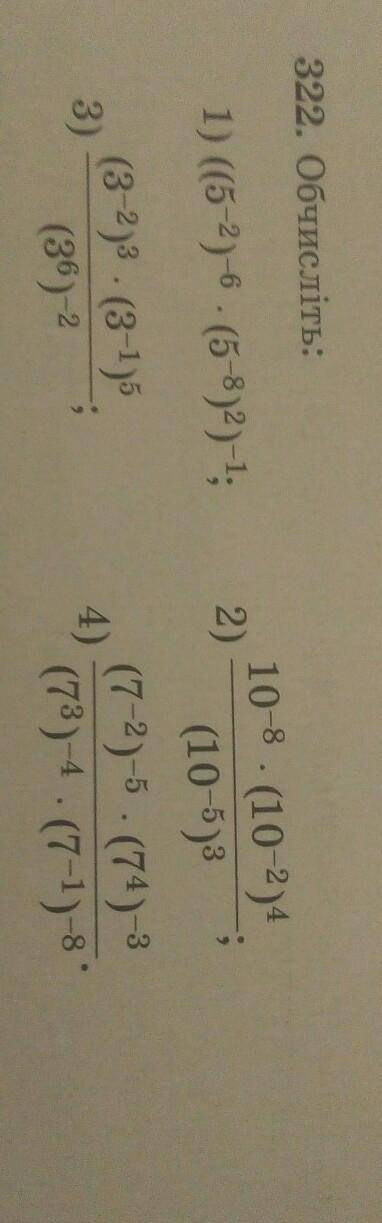 322. Обчисліть:
1) ((5⁻²)⁻⁶ · (5⁻⁸)²)⁻¹;
2) \frac{10⁻⁸ · (10⁻²)⁴}{(10⁻⁵)³};
3) \frac{(3⁻²)³ · (3⁻¹)⁵}{(3⁶)⁻²};
4) \frac{(7⁻²)⁻⁵ · (7⁴)⁻³}{(7³)⁻⁴ · (7⁻¹)⁻⁸}.